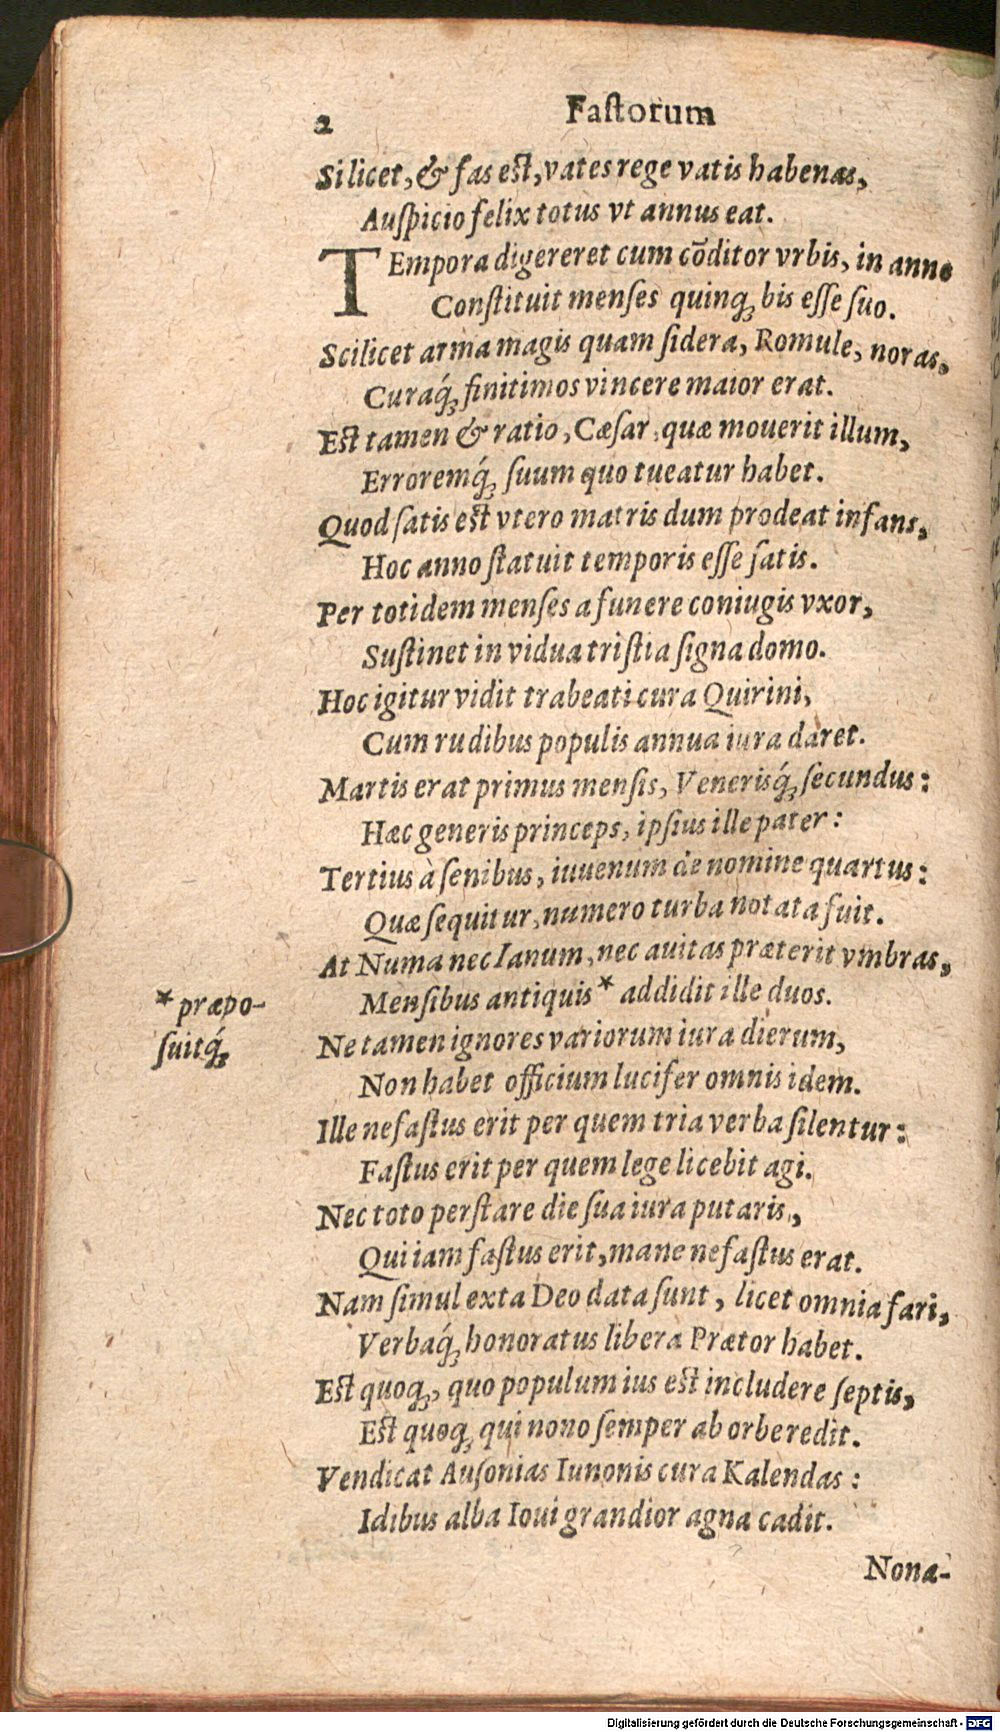 2 Faſtorum
Si licet, & fas eſt, vates rege vatis habenas,
Auſpicio felix totus vt annus eat.
TEmpora digereret cum cōditor vrbis, in anno
Conſtituit menſes quinq; bis eſſe ſuo.
Scilicet arma magis quam ſidera, Romule, noras,
Curaq́; finitimos vincere maior erat.
Eſt tamen & ratio, Cæſar, quæ mouerit illum,
Erroremq́; ſuum quo tueatur habet.
Quod ſatis eſt vtero matris dum prodeat infans,
Hoc anno ſtatuit temporis eſſe ſatis.
Per totidem menſes a funere coniugis vxor,
Suſtinet in vidua triſtia ſigna domo.
Hoc igitur vidit trabeati cura Quirini,
Cum rudibus populis annua iura daret.
Martis erat primus menſis, Venerisq́; ſecundus:
Hæc generis princeps, ipſius ille pater:
Tertius à ſenibus, iuuenum de nomine quartus:
Quæ ſequitur, numero turba notata fuit.
At Numa nec Ianum, nec auitas præterit vmbras,
Menſibus antiquis* addidit ille duos.
* præpo-
ſuitq́;
Ne tamen ignores variorum iura dierum,
Non habet officium lucifer omnis idem.
Ille nefaſtus erit per quem tria verba ſilentur:
Faſtus erit per quem lege licebit agi.
Nec toto perſtare die ſua iura putaris,
Qui iam faſtus erit, mane nefaſtus erat.
Nam ſimul exta Deo data ſunt, licet omnia fari,
Verbaq́; honoratus libera Prætor habet.
Eſt quoq;, quo populum ius eſt includere ſeptis,
Eſt quoq; qui nono ſemper ab orbe redit.
Vendicat Auſonias Iunonis cura Kalendas:
Idibus alba Ioui grandior agna cadit.
Nona-
Digitalisierung gefördert durch die Deutsche Forschungsgemeinschaft - DFG